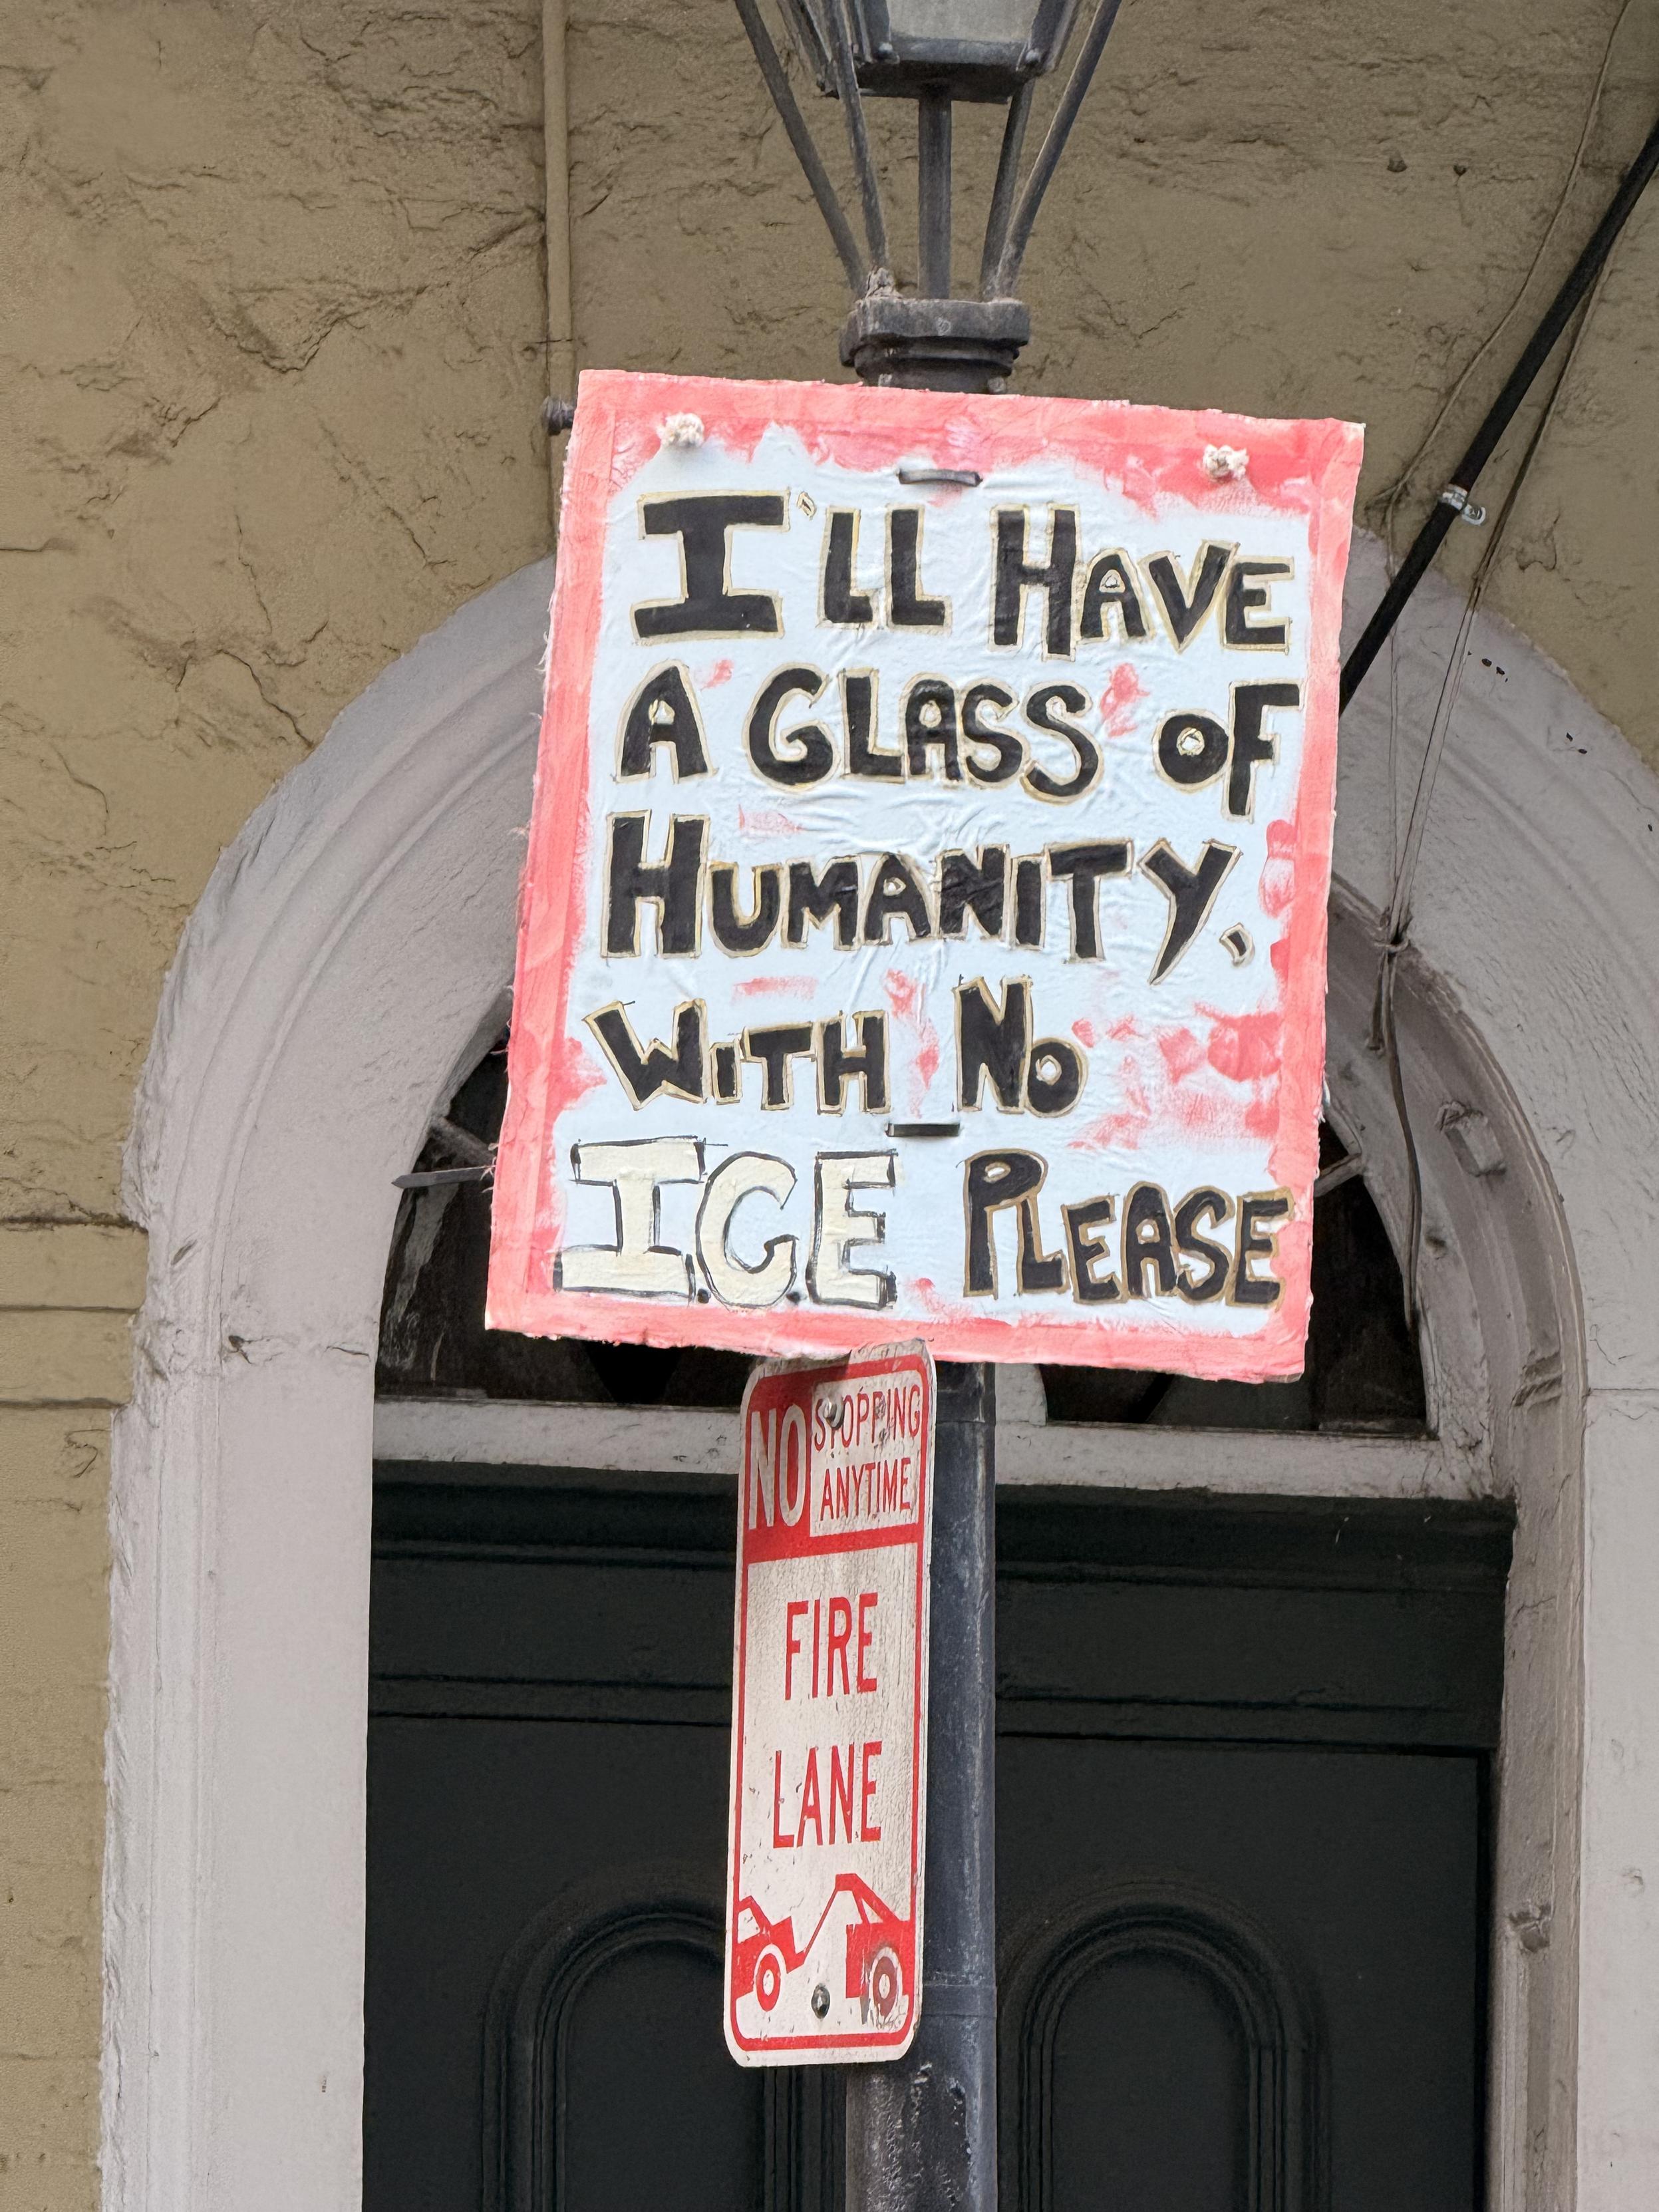 I'LL HAVE
A GLASS OF
HUMANITY,
WITH NO
I.C.E PLEASE
NO STOPPING
ANYTIME
FIRE
LANE